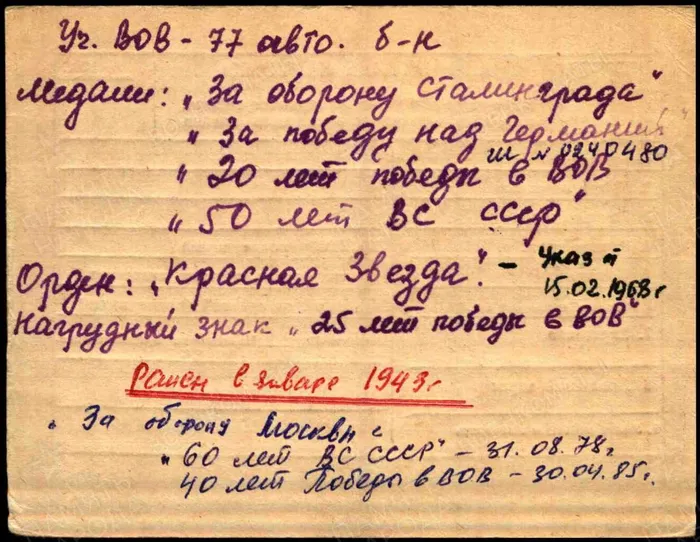 Уч. ВОВ - 77 авто. б-н
медали: „За оборону Сталинграда"
„За победу над Германией"
Ш № 0240480
„20 лет победы в ВОВ
„50 лет ВС СССР"
Орден: „Красная Звезда". - Указ от
15.02.1968г
нагрудный знак „25 лет победы в ВОВ"
Ранен в январе 1943г
„За оборону Москвы"
„60 лет ВС СССР" - 31.08.78г.
40 лет Победы в ВОВ - 30.04.85г.